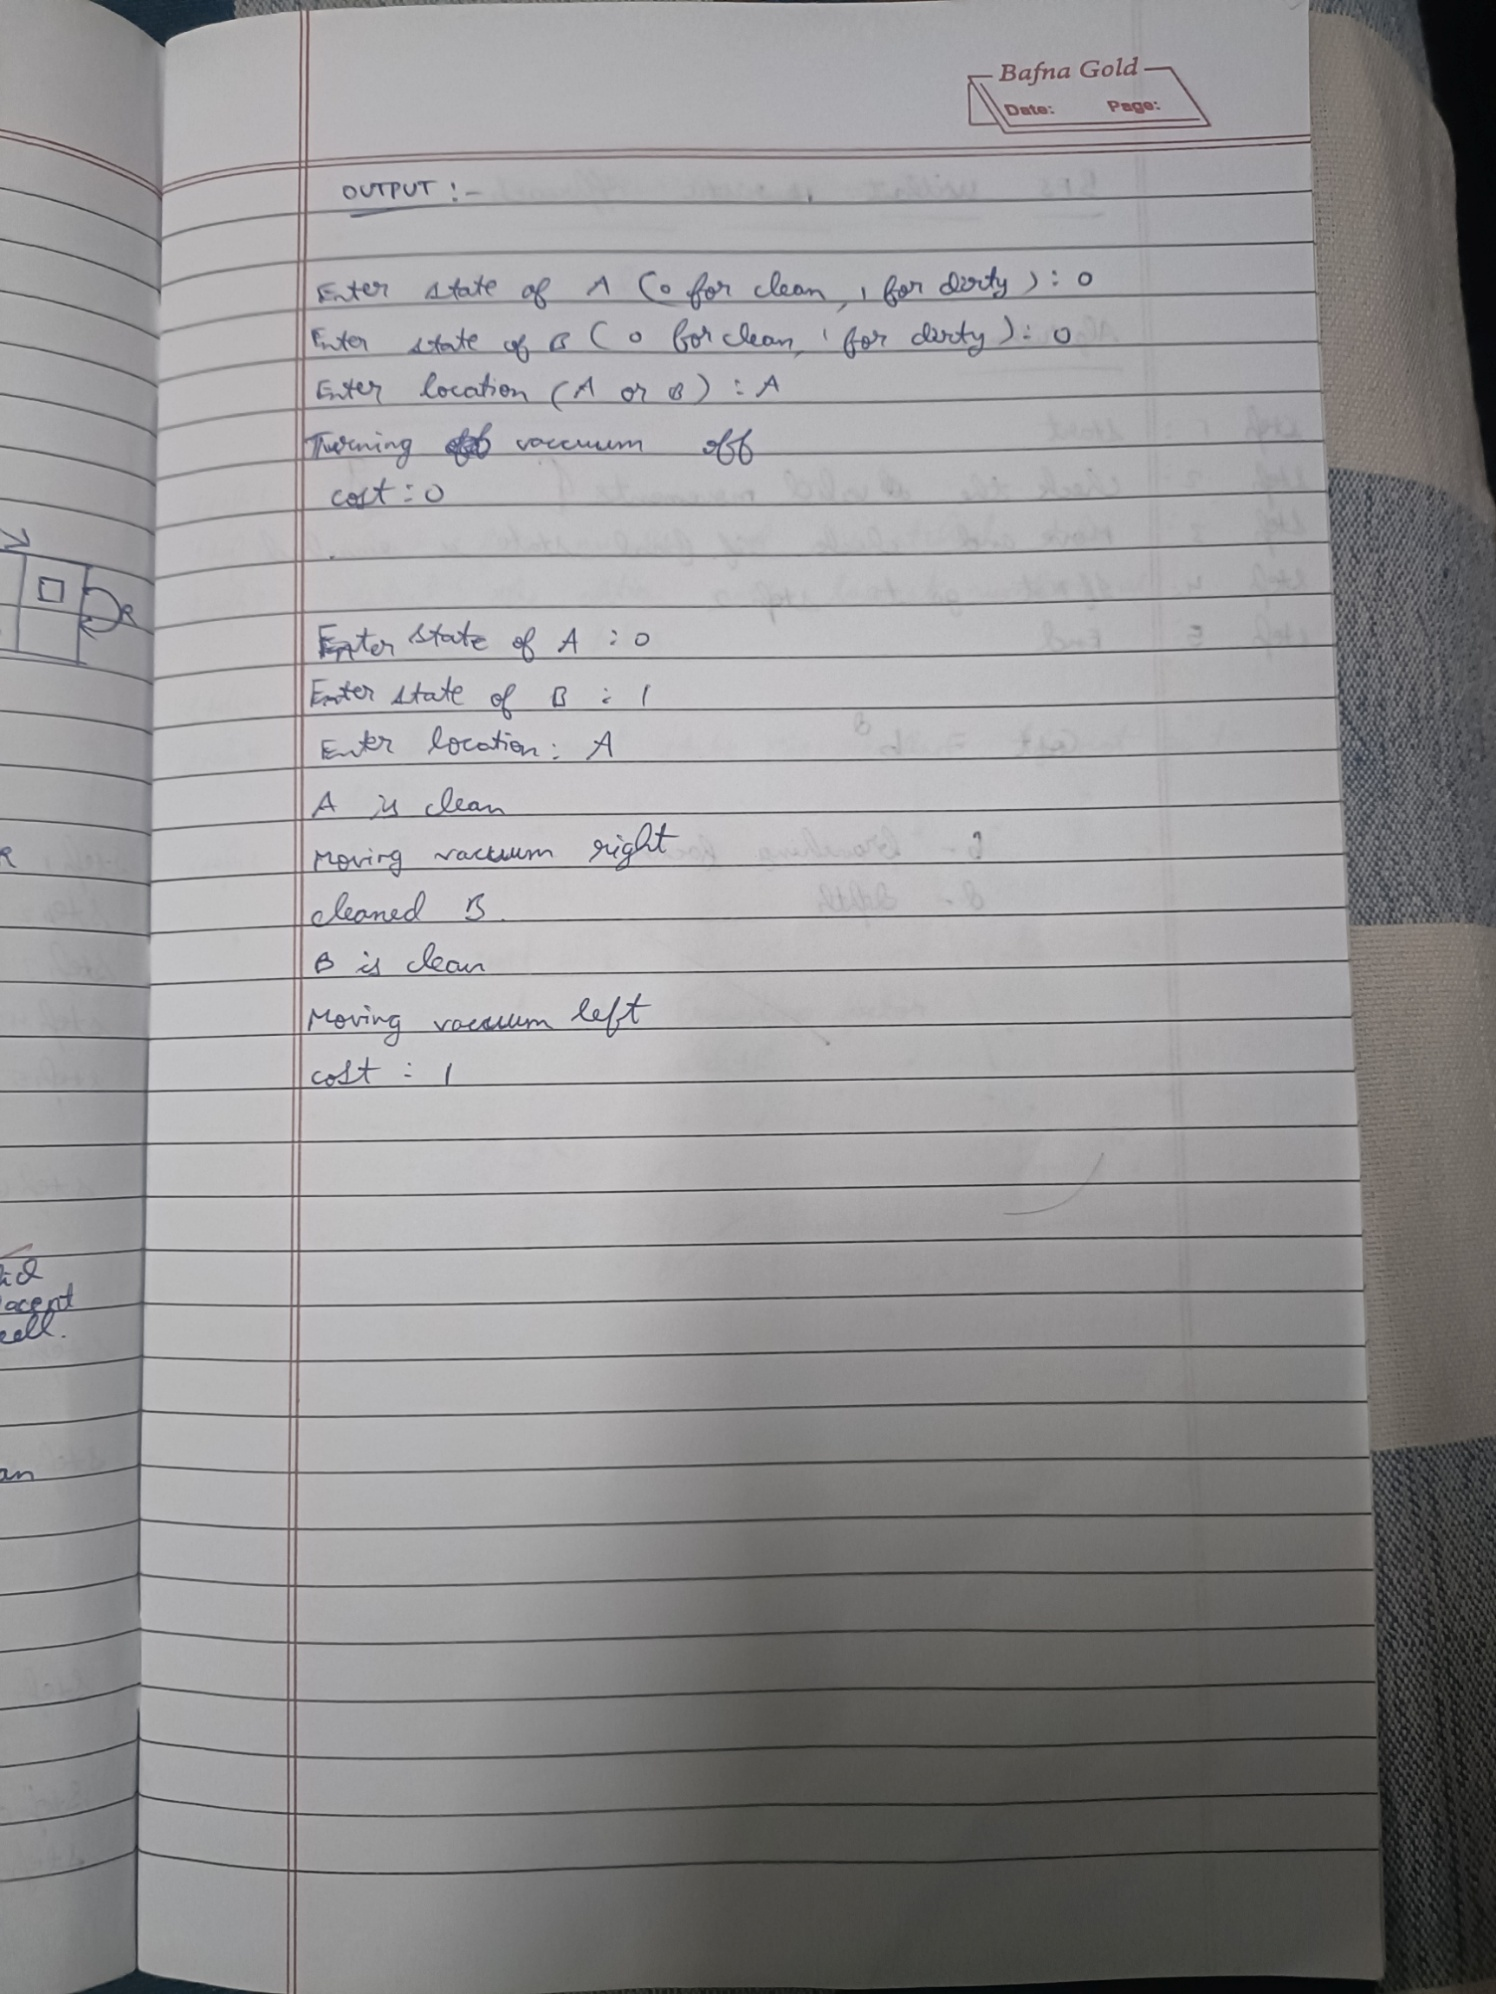 Bafna Gold
Date: Page:
OUTPUT :-
Enter state of A (0 for clean, 1 for dirty) : 0
Enter state of B (0 for clean, 1 for dirty) : 0
Enter location (A or B) : A
Turning vaccuum off
cost : 0
Enter state of A : 0
Enter state of B : 1
Enter location : A
A is clean
Moving vacuum right
cleaned B.
B is clean
Moving vacuum left
cost : 1
R
R
cell.